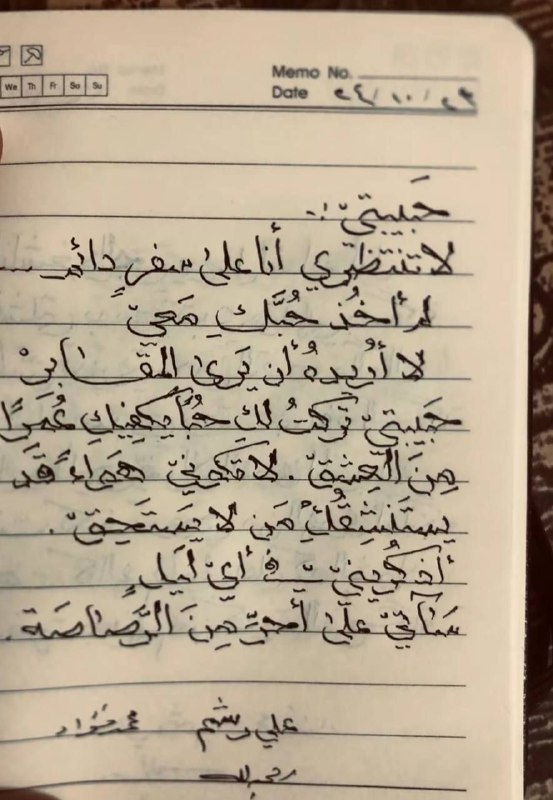 We Th Fr Sa Su
Memo No.
Date ٢٤/١٠/٢٣
حَبيبتيّ :
لا تنتظري أنا على سفرٍ دائمٍ ...
لم أخُذ حُبَّكِ مَعيّ
لا أُريدهُ أن يَرى المقَابرْ
حَبيبتيّ تركتُ لكِ حُبًا يكفيكِ عُمرًا
مِنَ العِشقّ . لا تكونيّ هَواءً قَد
يستَنشِقُكِ مَن لا يَستَحِقّ .
أذكُرينيّ فيّ أيّ لَيلٍ
سَآتيّ على أحرّ مِنَ الرَّصاصَة .
علي رستم
رحمه الله